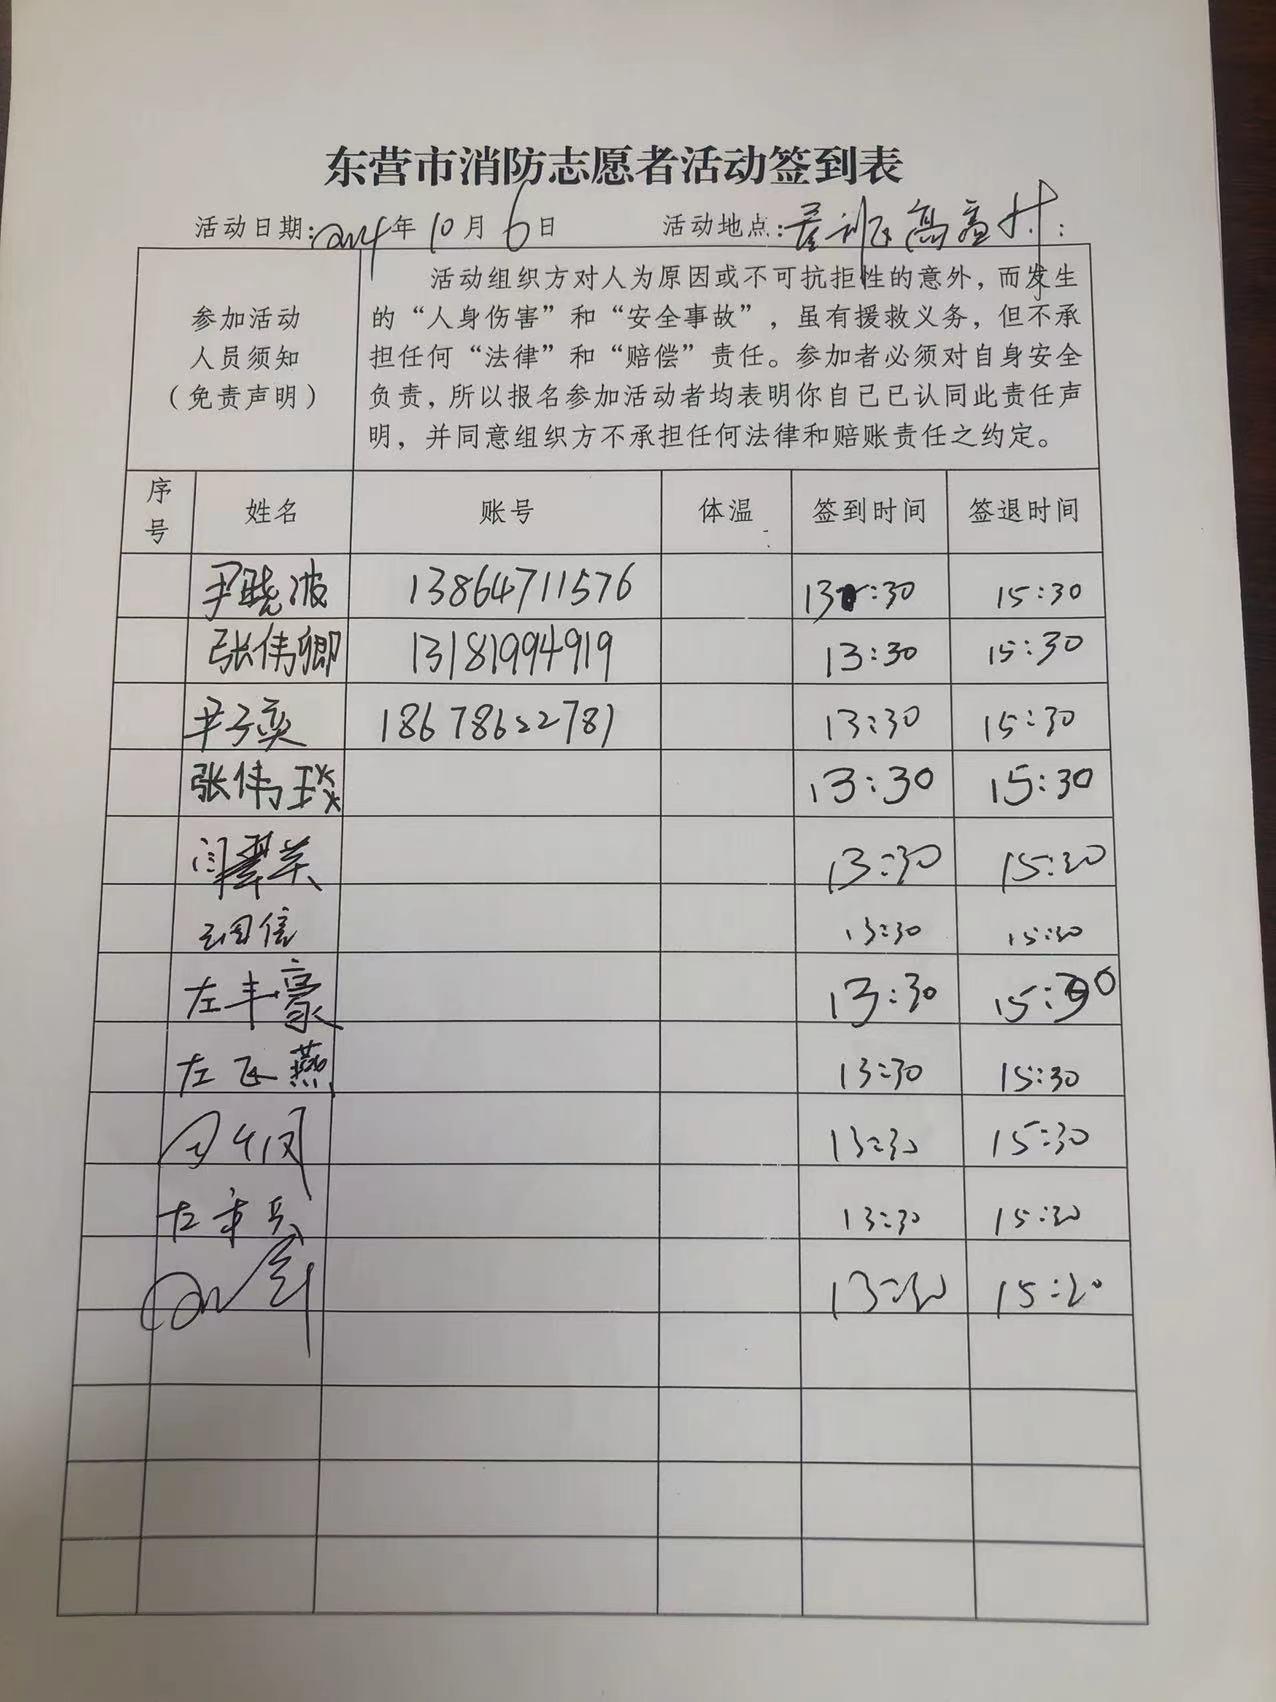 东营市消防志愿者活动签到表
活动日期:2024年10月6日 活动地点:
参加活动
人员须知
(免责声明)
活动组织方对人为原因或不可抗拒性的意外，而发生
的“人身伤害”和“安全事故”，虽有援救义务，但不承
担任何“法律”和“赔偿”责任。参加者必须对自身安全
负责，所以报名参加活动者均表明你自己已认同此责任声
明，并同意组织方不承担任何法律和赔账责任之约定。
序号 姓名 账号 体温 签到时间 签退时间
尹晓波 13864711576 13:30 15:30
张伟卿 13181994919 13:30 15:30
尹子奕 18678622781 13:30 15:30
张伟琰 13:30 15:30
闫翠英 13:30 15:30
信 13:30 15:30
左丰豪 13:30 15:30
左飞燕 13:30 15:30
13:30 15:30
左 13:30 15:30
13:30 15:20